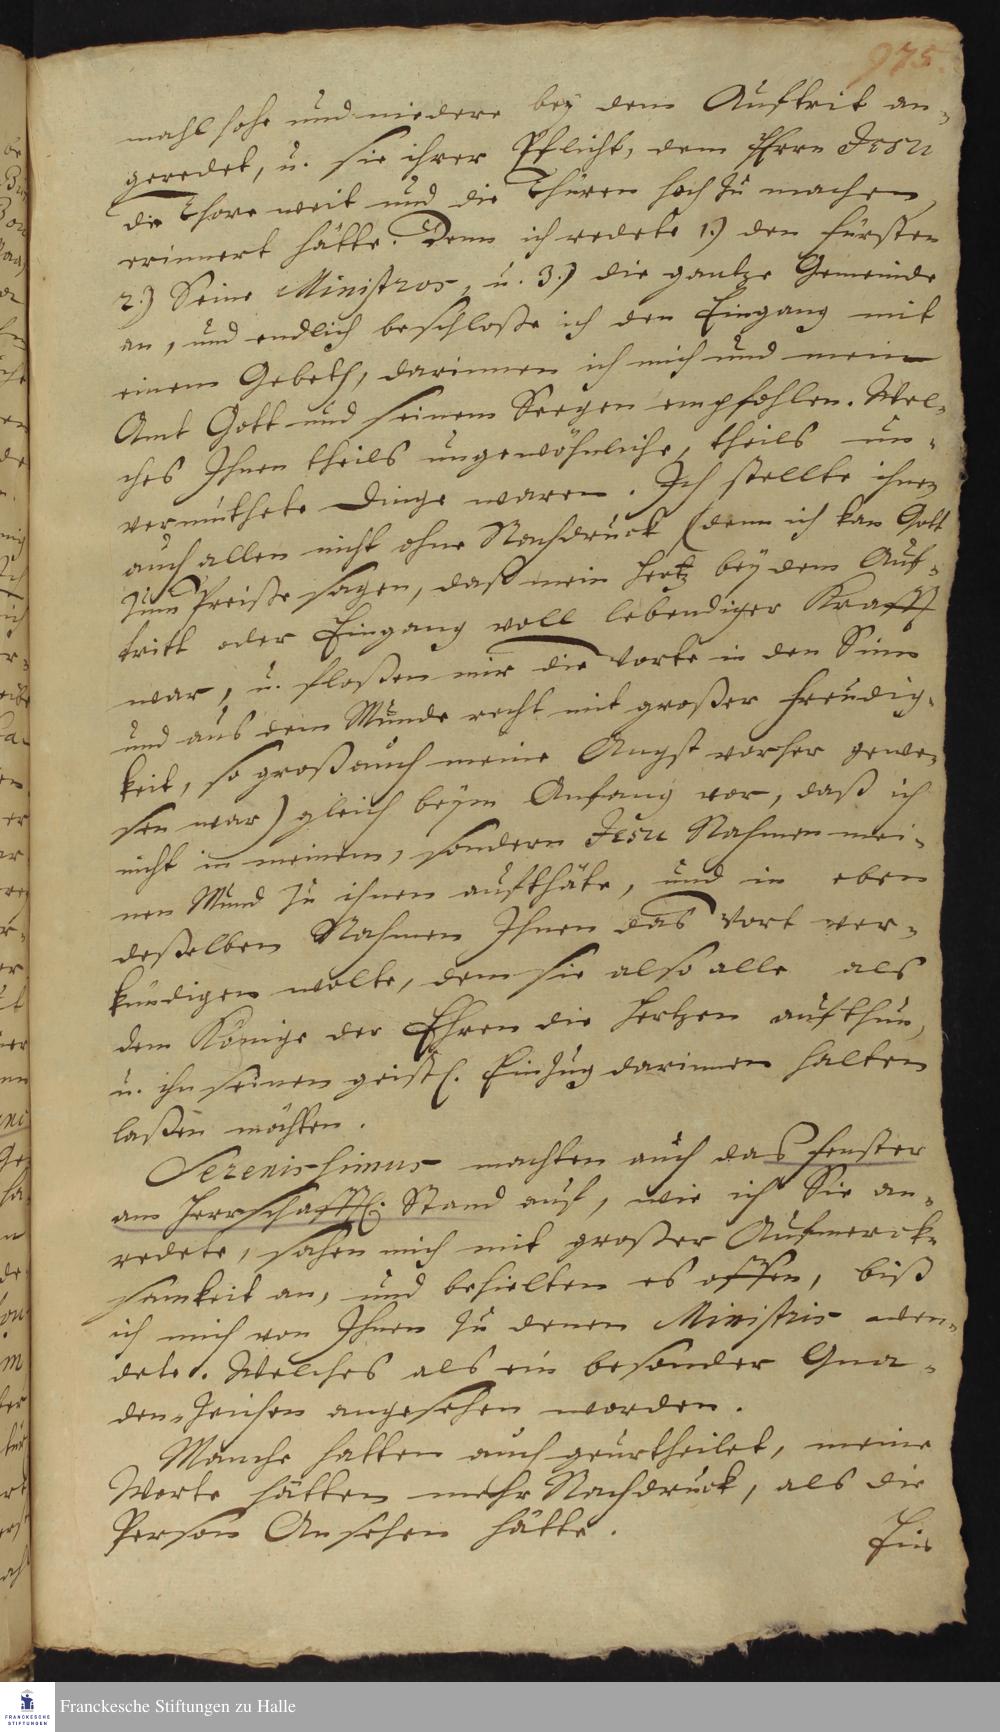 975.
mahl hohe und niedere bey dem Auftrit an-
geredet, u. sie ihrer Pflicht, dem Herrn Jesu
die Thore weit und die Thüren hoch zu machen,
erinnert hätte. Denn ich redete 1.) den Fürsten
2.) Seine Ministros, u. 3.) die gantze Gemeinde
an, und endlich beschloße ich den Eingang mit
einem Gebeth, darinnen ich mich und mein
Amt Gott und seinem Seegen empfohlen. Wel-
ches Ihnen theils ungewöhnliche, theils un-
vermuthete Dinge waren. Ich stellte ihnen
auch allen nicht ohne Nachdruck (denn ich kan Gott
zum Preiße sagen, daß mein Hertz bey dem Auf-
tritt oder Eingang voll lebendiger Krafft
war, u. floßen mir die Worte in den Sinn
und aus dem Munde recht mit großer Freudig-
keit, so groß auch meine Angst vorher gewe-
sen war) gleich beym Anfang vor, daß ich
nicht in meinem, sondern Jesu Nahmen mei-
nen Mund zu ihnen aufthäte, und in eben
deßelben Nahmen Ihnen das Wort ver-
kündigen wolte, dem sie also alle als
dem Könige der Ehren die Hertzen aufthun,
u. ihn seinen geistl. Einzug darinnen halten
laßen möchten.
Serenissimus machten auch das Fenster
am Herrschafftl. Stand auf, wie ich Sie an-
redete, sahen mich mit großer Aufmerck-
samkeit an, und behielten es offen, biß
ich mich von Ihnen zu denen Ministris wen-
dete. Welches als ein besonder Gna-
den-Zeichen angesehen worden.
Manche hatten auch geurtheilet, meine
Worte hätten mehr Nachdruck, als die
Person Ansehen hätte.
Ein
Franckesche Stiftungen zu Halle
FRANCKESCHE
STIFTUNGEN